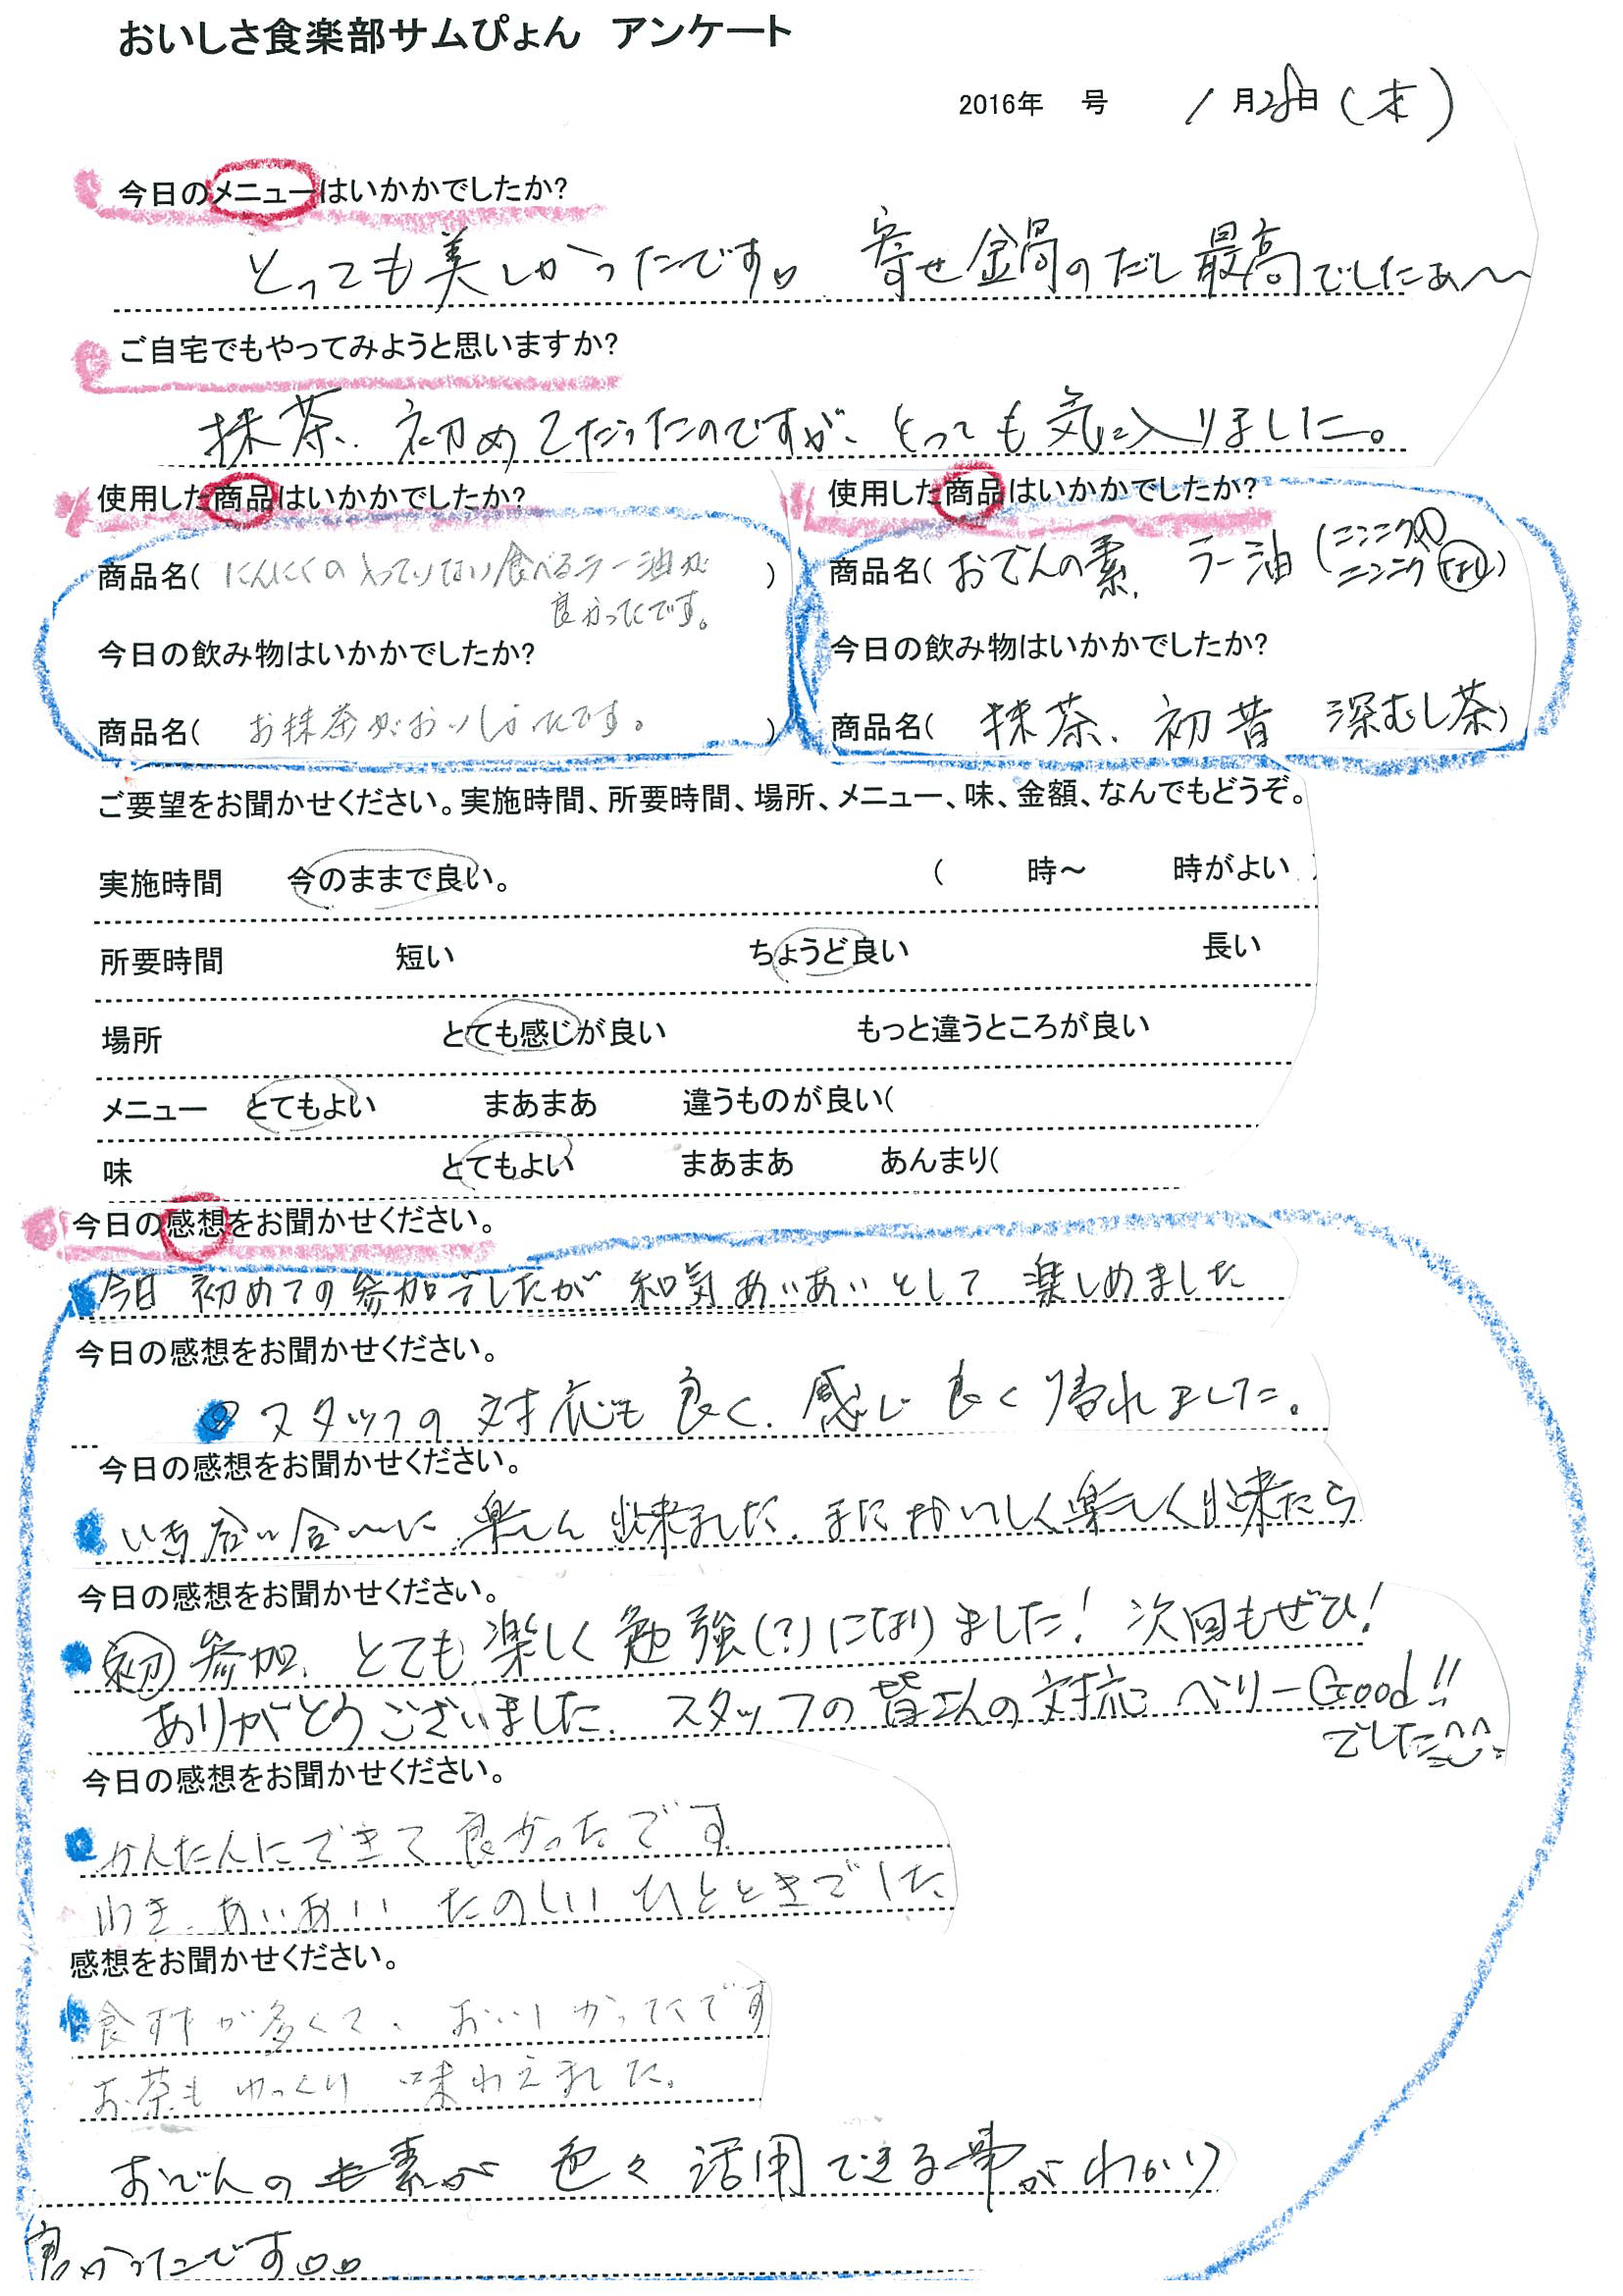 おいしさ食楽部サムぴょん アンケート
2016年 号 1月28日(木)
今日のメニューはいかかでしたか?
とっても美しかったです。寄せ鍋のだし最高でしたぁ〜
ご自宅でもやってみようと思いますか?
抹茶、初めてだったのですが、とっても気に入りました。
使用した商品はいかかでしたか?
商品名( にんにくの入っていない食べるラー油が
良かったです。 )
今日の飲み物はいかかでしたか?
商品名( お抹茶がおいしかったです。 )
使用した商品はいかかでしたか?
商品名( おでんの素、ラー油 (ニンニク入
ニンニクなし)
今日の飲み物はいかかでしたか?
商品名( 抹茶、初昔 深むし茶)
ご要望をお聞かせください。実施時間、所要時間、場所、メニュー、味、金額、なんでもどうぞ。
実施時間 今のままで良い。 ( 時〜 時がよい )
所要時間 短い ちょうど良い 長い
場所 とても感じが良い もっと違うところが良い
メニュー とてもよい まあまあ 違うものが良い(
味 とてもよい まあまあ あんまり(
今日の感想をお聞かせください。
今日初めての参加でしたが和気あいあいとして楽しめました
今日の感想をお聞かせください。
スタッフの対応も良く、感じ良く帰れました。
今日の感想をお聞かせください。
出来ました、またおいしく楽しく出来たら
今日の感想をお聞かせください。
初参加、とても楽しく勉強(?)になりました!次回もぜひ!
ありがとうございました。スタッフの皆さんの対応ベリーGood!!
でした^^
今日の感想をお聞かせください。
かんたんにできて良かったです
わきあいあいたのしいひとときでした
感想をお聞かせください。
食材が多くて、おいしかったです
お茶もゆっくり味わえました。
おでんの素が色々活用できる事がわかり
良かったです。。